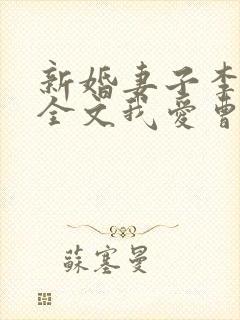 新婚妻子李
全文我爱曹
苏塞曼